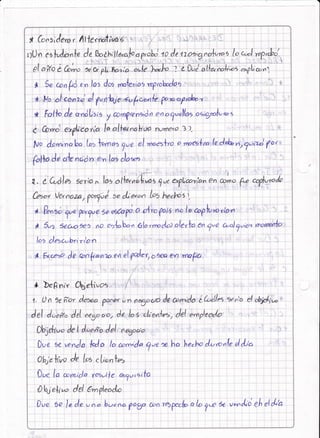 * Considerar Alternativas
1) Un estudiante de Bachillerato aprobó 10 de 12 asignaturas lo cual reprobó
el año ¿Como se explicaría este hecho? ¿Qué alternativas explican?
* Se confió en las dos materias reprobadas
* No alcanzo el puntaje suficiente para aprobar
* Falta de análisis y comprensión en aquellas asignaturas
¿Como explicaría la alternativa numero 3?
No dominaba los temas que el maestro o maestra le daban, quizá por
falta de atención en las clases
2. ¿Cuáles serían las alternativas que explicarían en como fue capturado
Cesar Vernoza, porqué se dieron los hechos?
* Pensó que porque se escapo a otro país no lo capturarían
* Sus secuases no estaban alarmados alerta en que cualquier momento
los descubrirían
* Exceso de confianza en el poder, o sea en mafia.
* Definir Objetivos
1. Un señor desea poner un negocio de comida ¿Cuáles sería el objetivo
del dueño del negocio, de los clientes, del empleado
Objetivo del dueño del negocio
Que se venda toda la comida que se ha hecho durante el día
Objetivo de los clientes
Que la comida resulte exquisita
Objetivo del Empleado
Que se le de una buena paga con respecto a lo que se vendió en el día